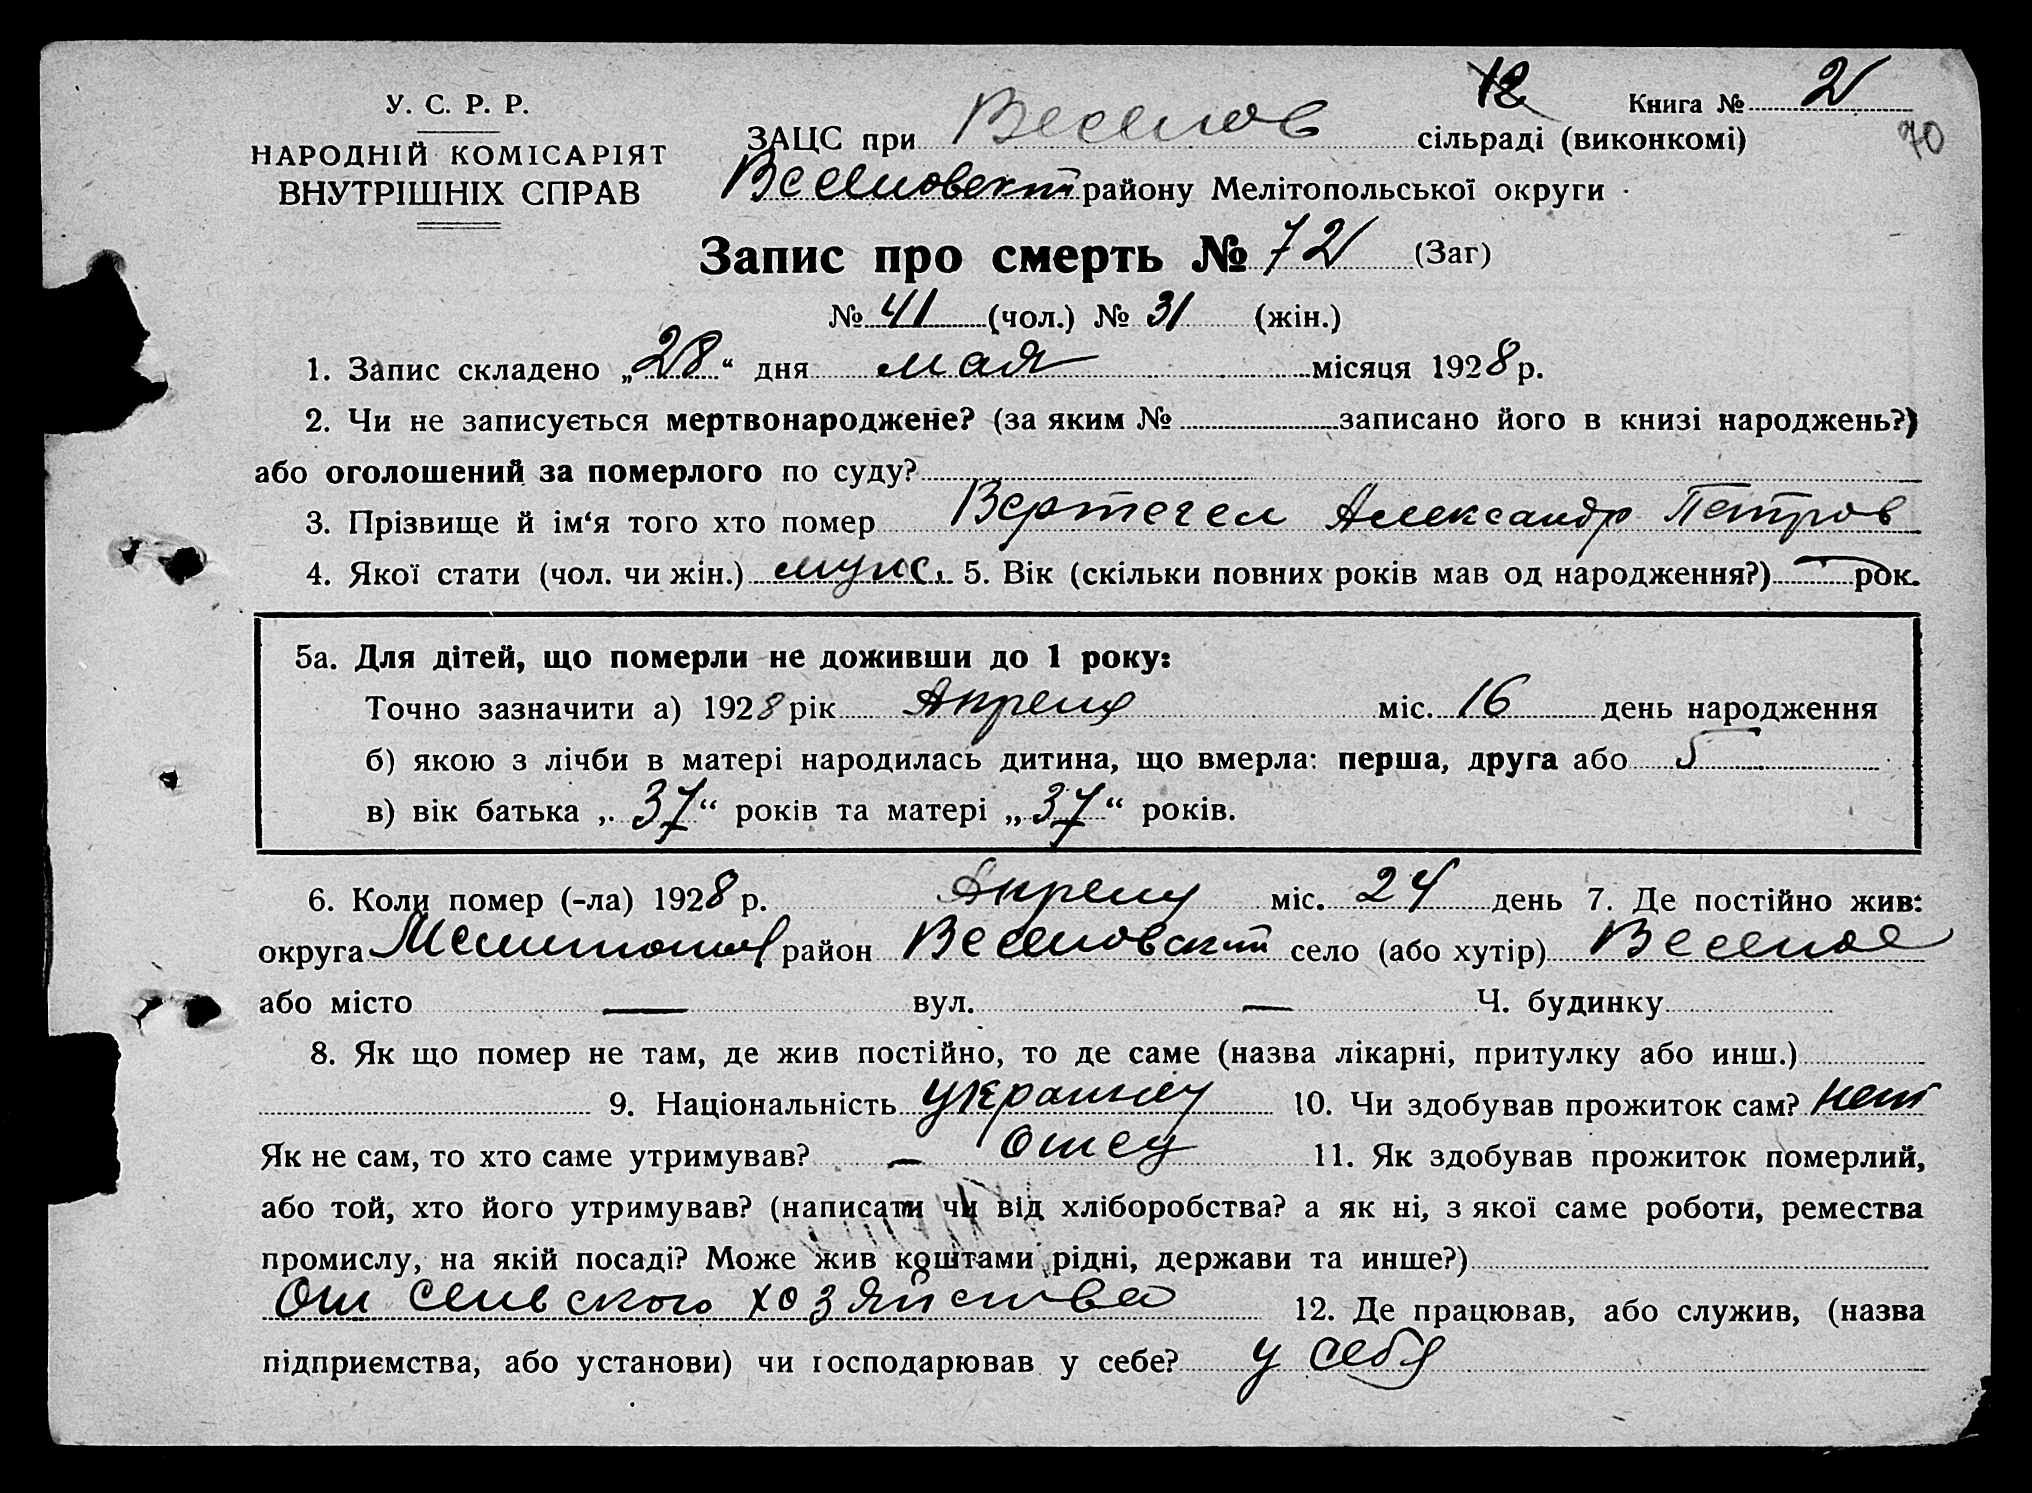 12 Книга № 2
У. С. Р. Р.
70
НАРОДНІЙ КОМІСАРІЯТ
ВНУТРІШНІХ СПРАВ
ЗАЦС при Веселов сільраді (виконкомі)
Веселовский району Мелітопольської округи
Запис про смерть № 72 (Заг)
№ 41 (чол.) № 31 (жін.)
1. Запис складено „28“ дня мая місяця 1928 р.
2. Чи не записується мертвонароджене? (за яким № записано його в книзі народжень?)
або оголошений за померлого по суду?
3. Прізвище й ім‘я того хто помер Вертегел Александр Петров
4. Якої стати (чол. чи жін.) мужс. 5. Вік (скільки повних років мав од народження?) рок.
5а. Для дітей, що померли не доживши до 1 року:
Точно зазначити а) 1928 рік Апреля міс. 16 день народження
б) якою з лічби в матері народилась дитина, що вмерла: перша, друга або 5
в) вік батька „37“ років та матері „37“ років.
6. Коли помер (-ла) 1928 р. Апреля міс. 24 день 7. Де постійно жив:
округа Мелитопол район Веселовский село (або хутір) Веселое
або місто — вул. — Ч. будинку
8. Як що помер не там, де жив постійно, то де саме (назва лікарні, притулку або инш.)
9. Національність украинец 10. Чи здобував прожиток сам? нет
Як не сам, то хто саме утримував? — отец 11. Як здобував прожиток померлий,
або той, хто його утримував? (написати чи від хліборобства? а як ні, з якої саме роботи, ремества
промислу, на якій посаді? Може жив коштами рідні, держави та инше?)
От сельского хозяйства 12. Де працював, або служив, (назва
підприємства, або установи) чи господарював у себе? у себя